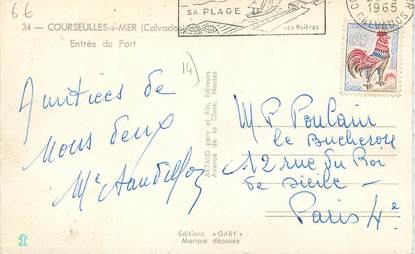 6€
SA PLAGE
ses Huîtres
1965
CALVADOS
0,25
34 — COURSEULLES-s-MER (Calvados)
Entrée du Port
14)
Amitiés de
nous deux
ARTAUD père et Fils, Editeurs
Avenue de la Close, Nantes
M P Poulain
le Bucheron
12 rue du Roi
de Sicile -
Paris 4e
Editions « GABY »
Marque déposée